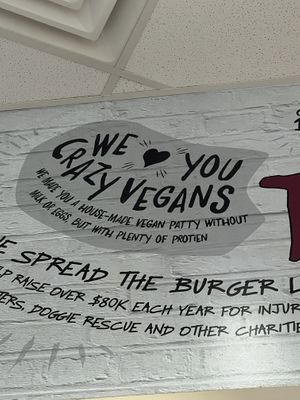 WE ♥ YOU
CRAZY VEGANS
WE MADE YOU A HOUSE-MADE VEGAN PATTY WITHOUT
MILK OF EGGS, BUT WITH PLENTY OF PROTIEN
SPREAD THE BURGER
RAISE OVER $80K EACH YEAR FOR
DOGGIE RESCUE AND OTHER